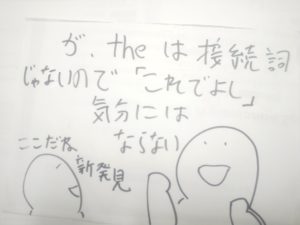 が、the は接続詞
じゃないので「これでよし」
気分には
ならない
ここだね
新発見